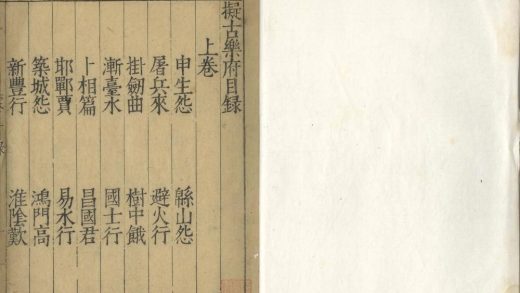 擬古樂府目録
上卷
申生怨 緜山怨
屠兵來 避火行
掛劒曲 樹中餓
漸臺水 國士行
卜相篇 昌國君
邯鄲賈 易水行
築城怨 鴻門高
新豐行 淮陰歎